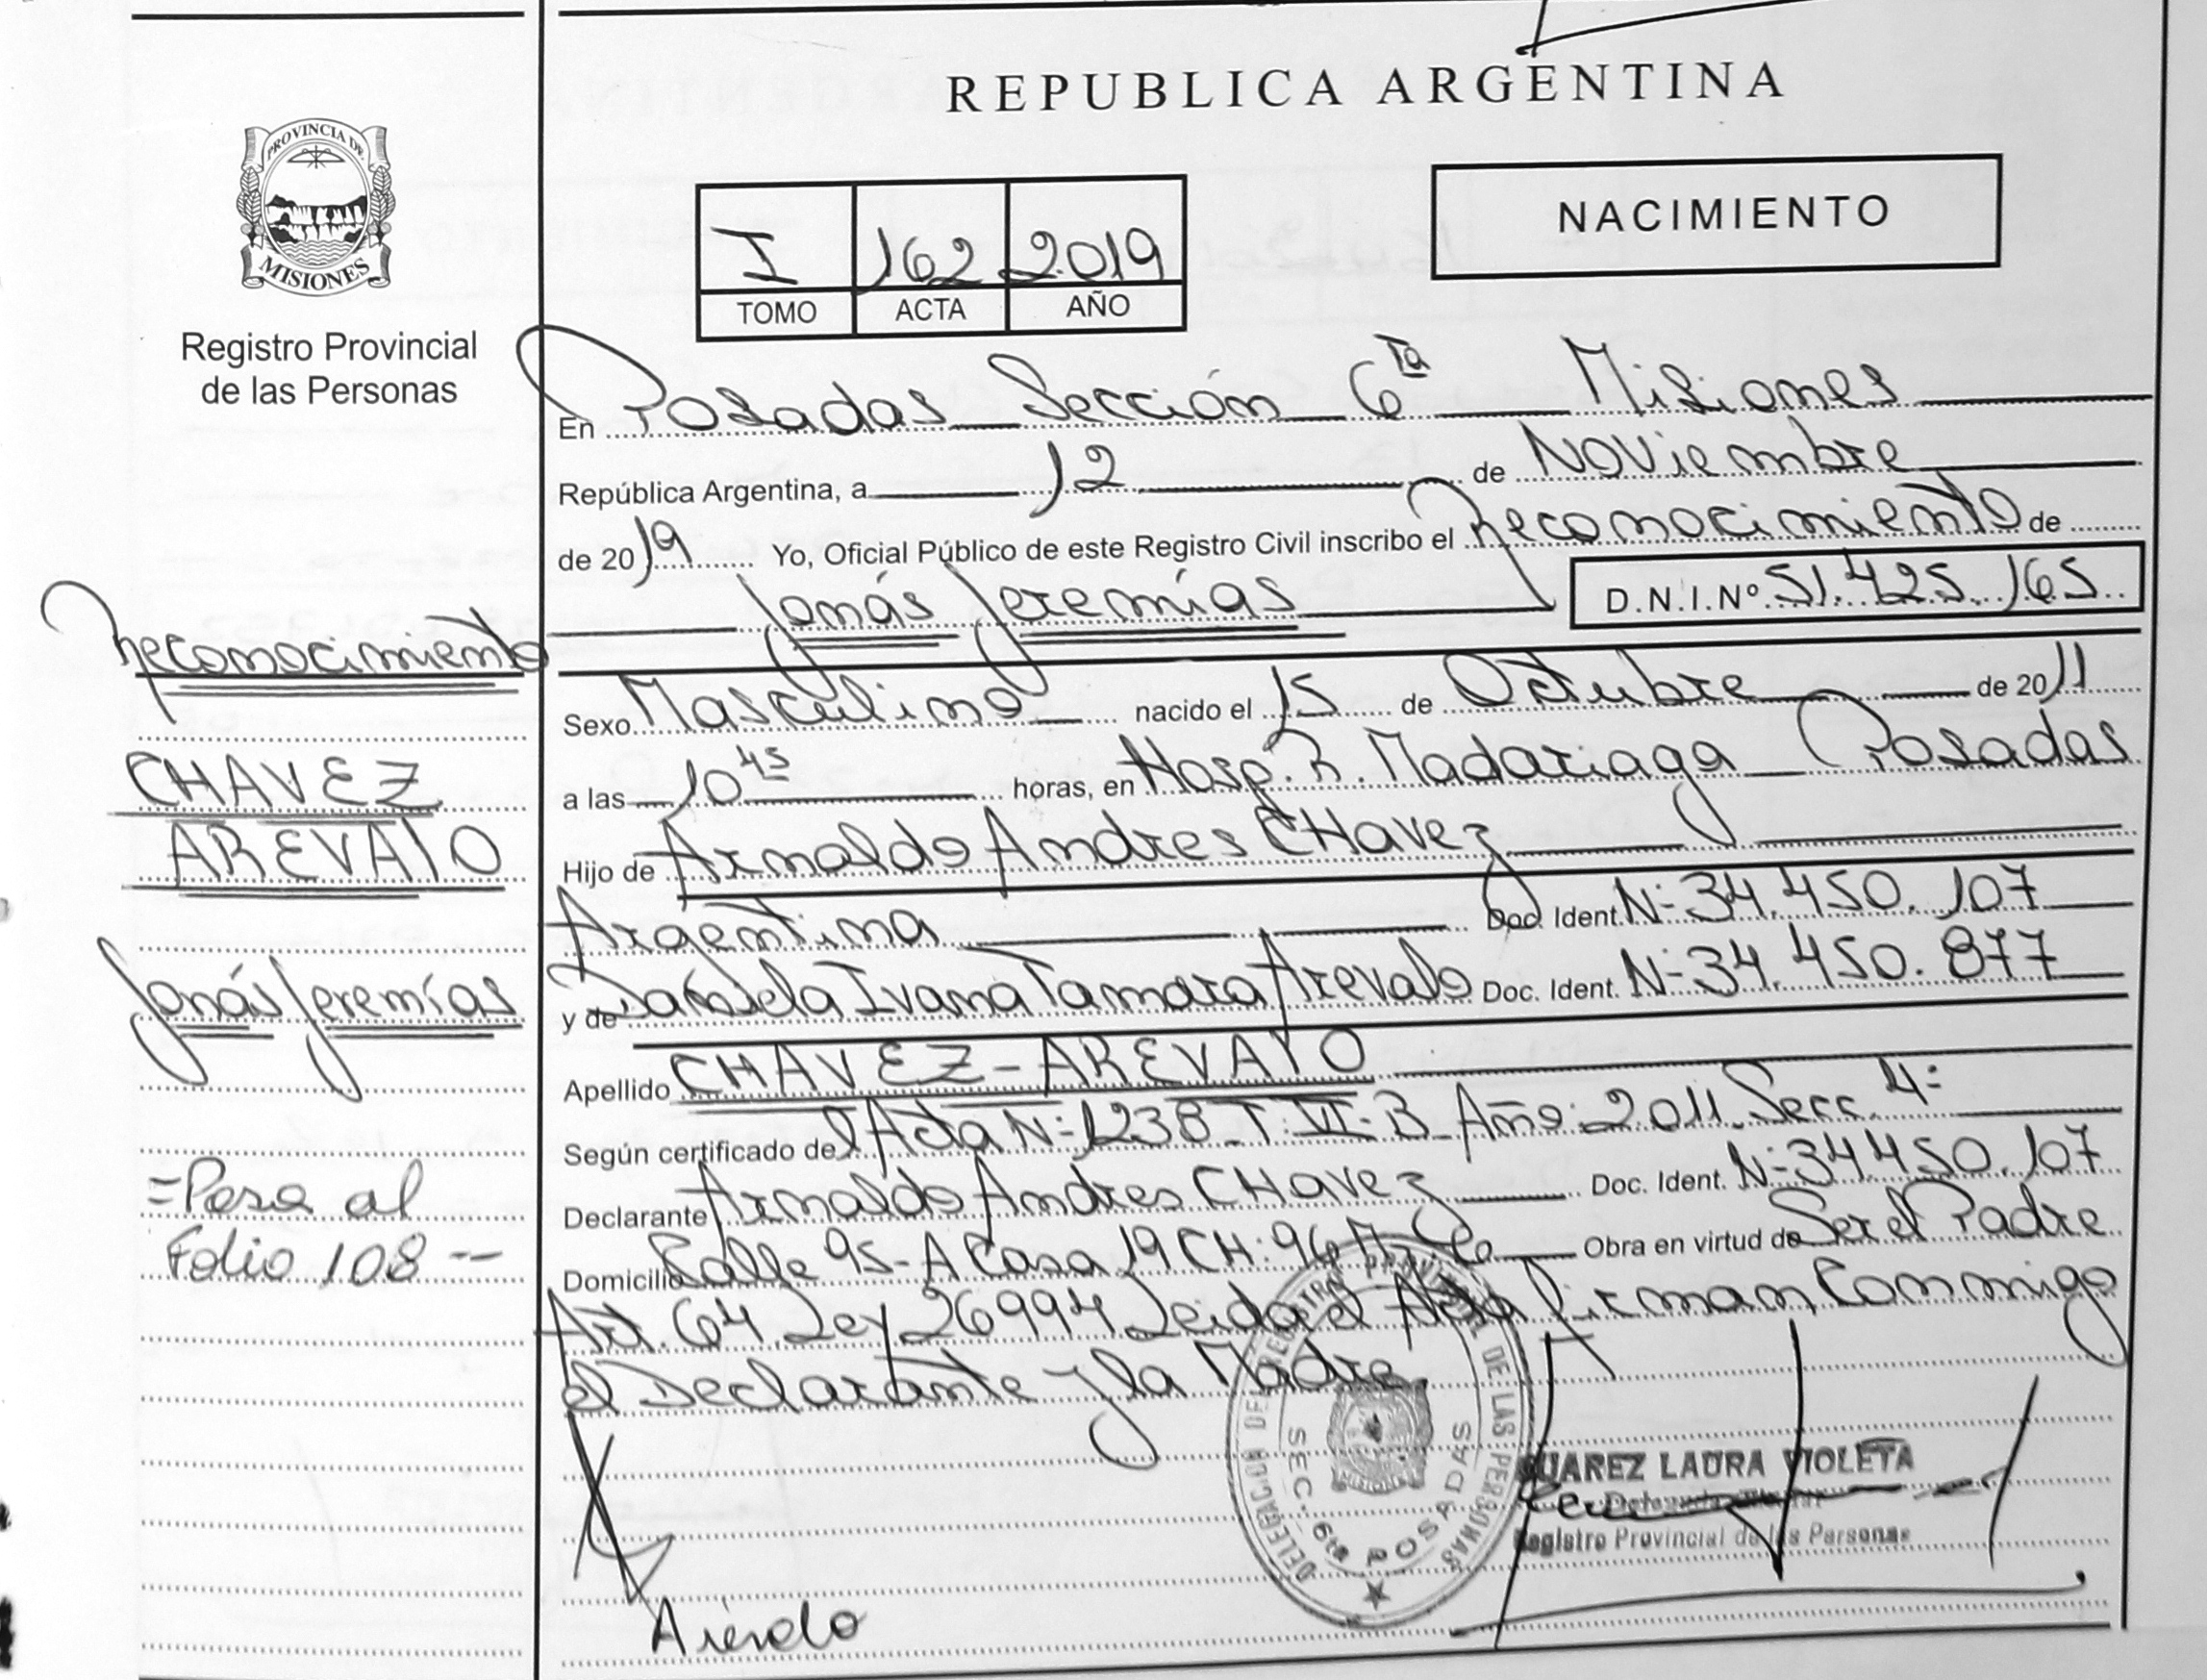 REPUBLICA ARGENTINA
PROVINCIA DE
MISIONES
Registro Provincial
de las Personas
NACIMIENTO
I 162 2019
TOMO ACTA AÑO
En Posadas Sección 6ta Misiones
República Argentina, a 12 de Noviembre
de 2019 Yo, Oficial Público de este Registro Civil inscribo el Reconocimiento de
Jonás Jeremías D.N.I.Nº 51.425.165
Sexo Masculino nacido el 15 de Octubre de 2011
a las 10 45 horas, en Hosp. R. Madariaga Posadas
Hijo de Arnaldo Andres CHavez
Argentina Doc. Ident. N- 34.450.107
y de Ivana Tamara Arevalo Doc. Ident. N- 34.450.877
Apellido CHAVEZ-AREVALO
Según certificado de Acta N- 1238 T. VI-B Año: 2011 Secc. 4-
Declarante Arnaldo Andres CHavez Doc. Ident. N- 34450.107
Domicilio Calle 95-A Casa 19 CH: 96 Obra en virtud de Ser el Padre
Art. 64 Ley 26994 Leida el Acta Firman Conmigo
el Declarante y la Madre.
Reconocimiento
CHAVEZ
AREVALO
Jonás Jeremías
=Pasa al
Folio 108 --
DELEGACION DEL REGISTRO PROVINCIAL DE LAS PERSONAS
SEC. 6ta POSADAS
SUAREZ LAURA VIOLETA
Registro Provincial de las Personas